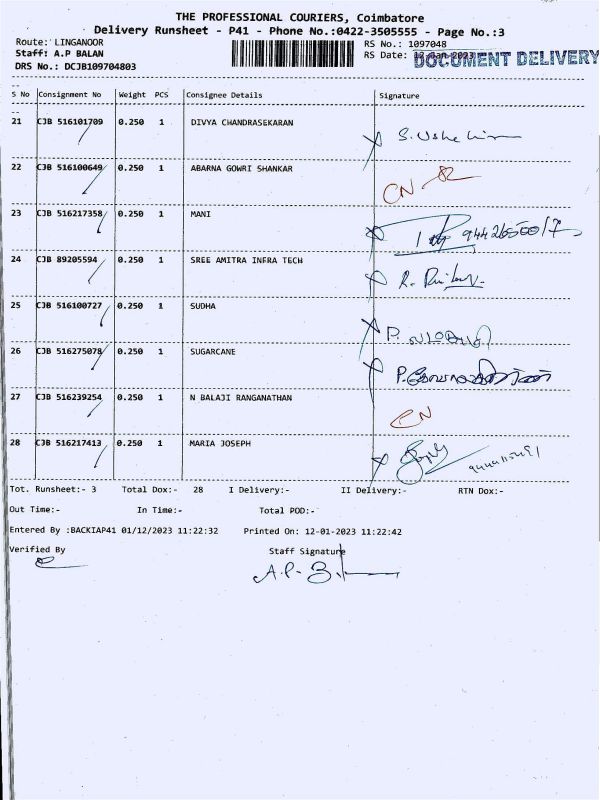 THE PROFESSIONAL COURIERS, Coimbatore
Delivery Runsheet - P41 - Phone No.:0422-3505555 - Page No.:3
Route: LINGANOOR
RS No.: 1097048
Staff: A.P BALAN
RS Date: 12-Jan-2023
DOCUMENT DELIVERY
DRS No.: DCJB109704803
S No Consignment No Weight PCS Consignee Details Signature
21 CJB 516101709 0.250 1 DIVYA CHANDRASEKARAN
22 CJB 516100649 0.250 1 ABARNA GOWRI SHANKAR CN
23 CJB 516217358 0.250 1 MANI
24 CJB 89205594 0.250 1 SREE AMITRA INFRA TECH
25 CJB 516100727 0.250 1 SUDHA
26 CJB 516275078 0.250 1 SUGARCANE
27 CJB 516239254 0.250 1 N BALAJI RANGANATHAN CN
28 CJB 516217413 0.250 1 MARIA JOSEPH
Tot. Runsheet:- 3 Total Dox:- 28 I Delivery:- II Delivery:- RTN Dox:-
Out Time:- In Time:- Total POD:-
Entered By :BACKIAP41 01/12/2023 11:22:32 Printed On: 12-01-2023 11:22:42
Verified By Staff Signature
A.P.